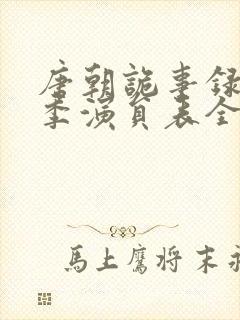 唐朝詭事録
季演員表全
馬上鷹将末